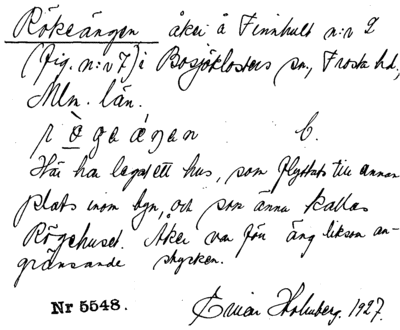 Rökeängen åker å Finnhult n:r 2
(fig. n:r 7) i Bosjöklosters sn., Frosta hd,
Mlm. län.
r ò̱ g e ä́ ŋ e n C.
Här har legat ett hus, som flyttats till annan
plats inom byn, och som ännu kallas
Rögehuset. Åker var förr äng liksom an-
gränsande stycken.
Nr 5548. Einar Holmberg. 1927.